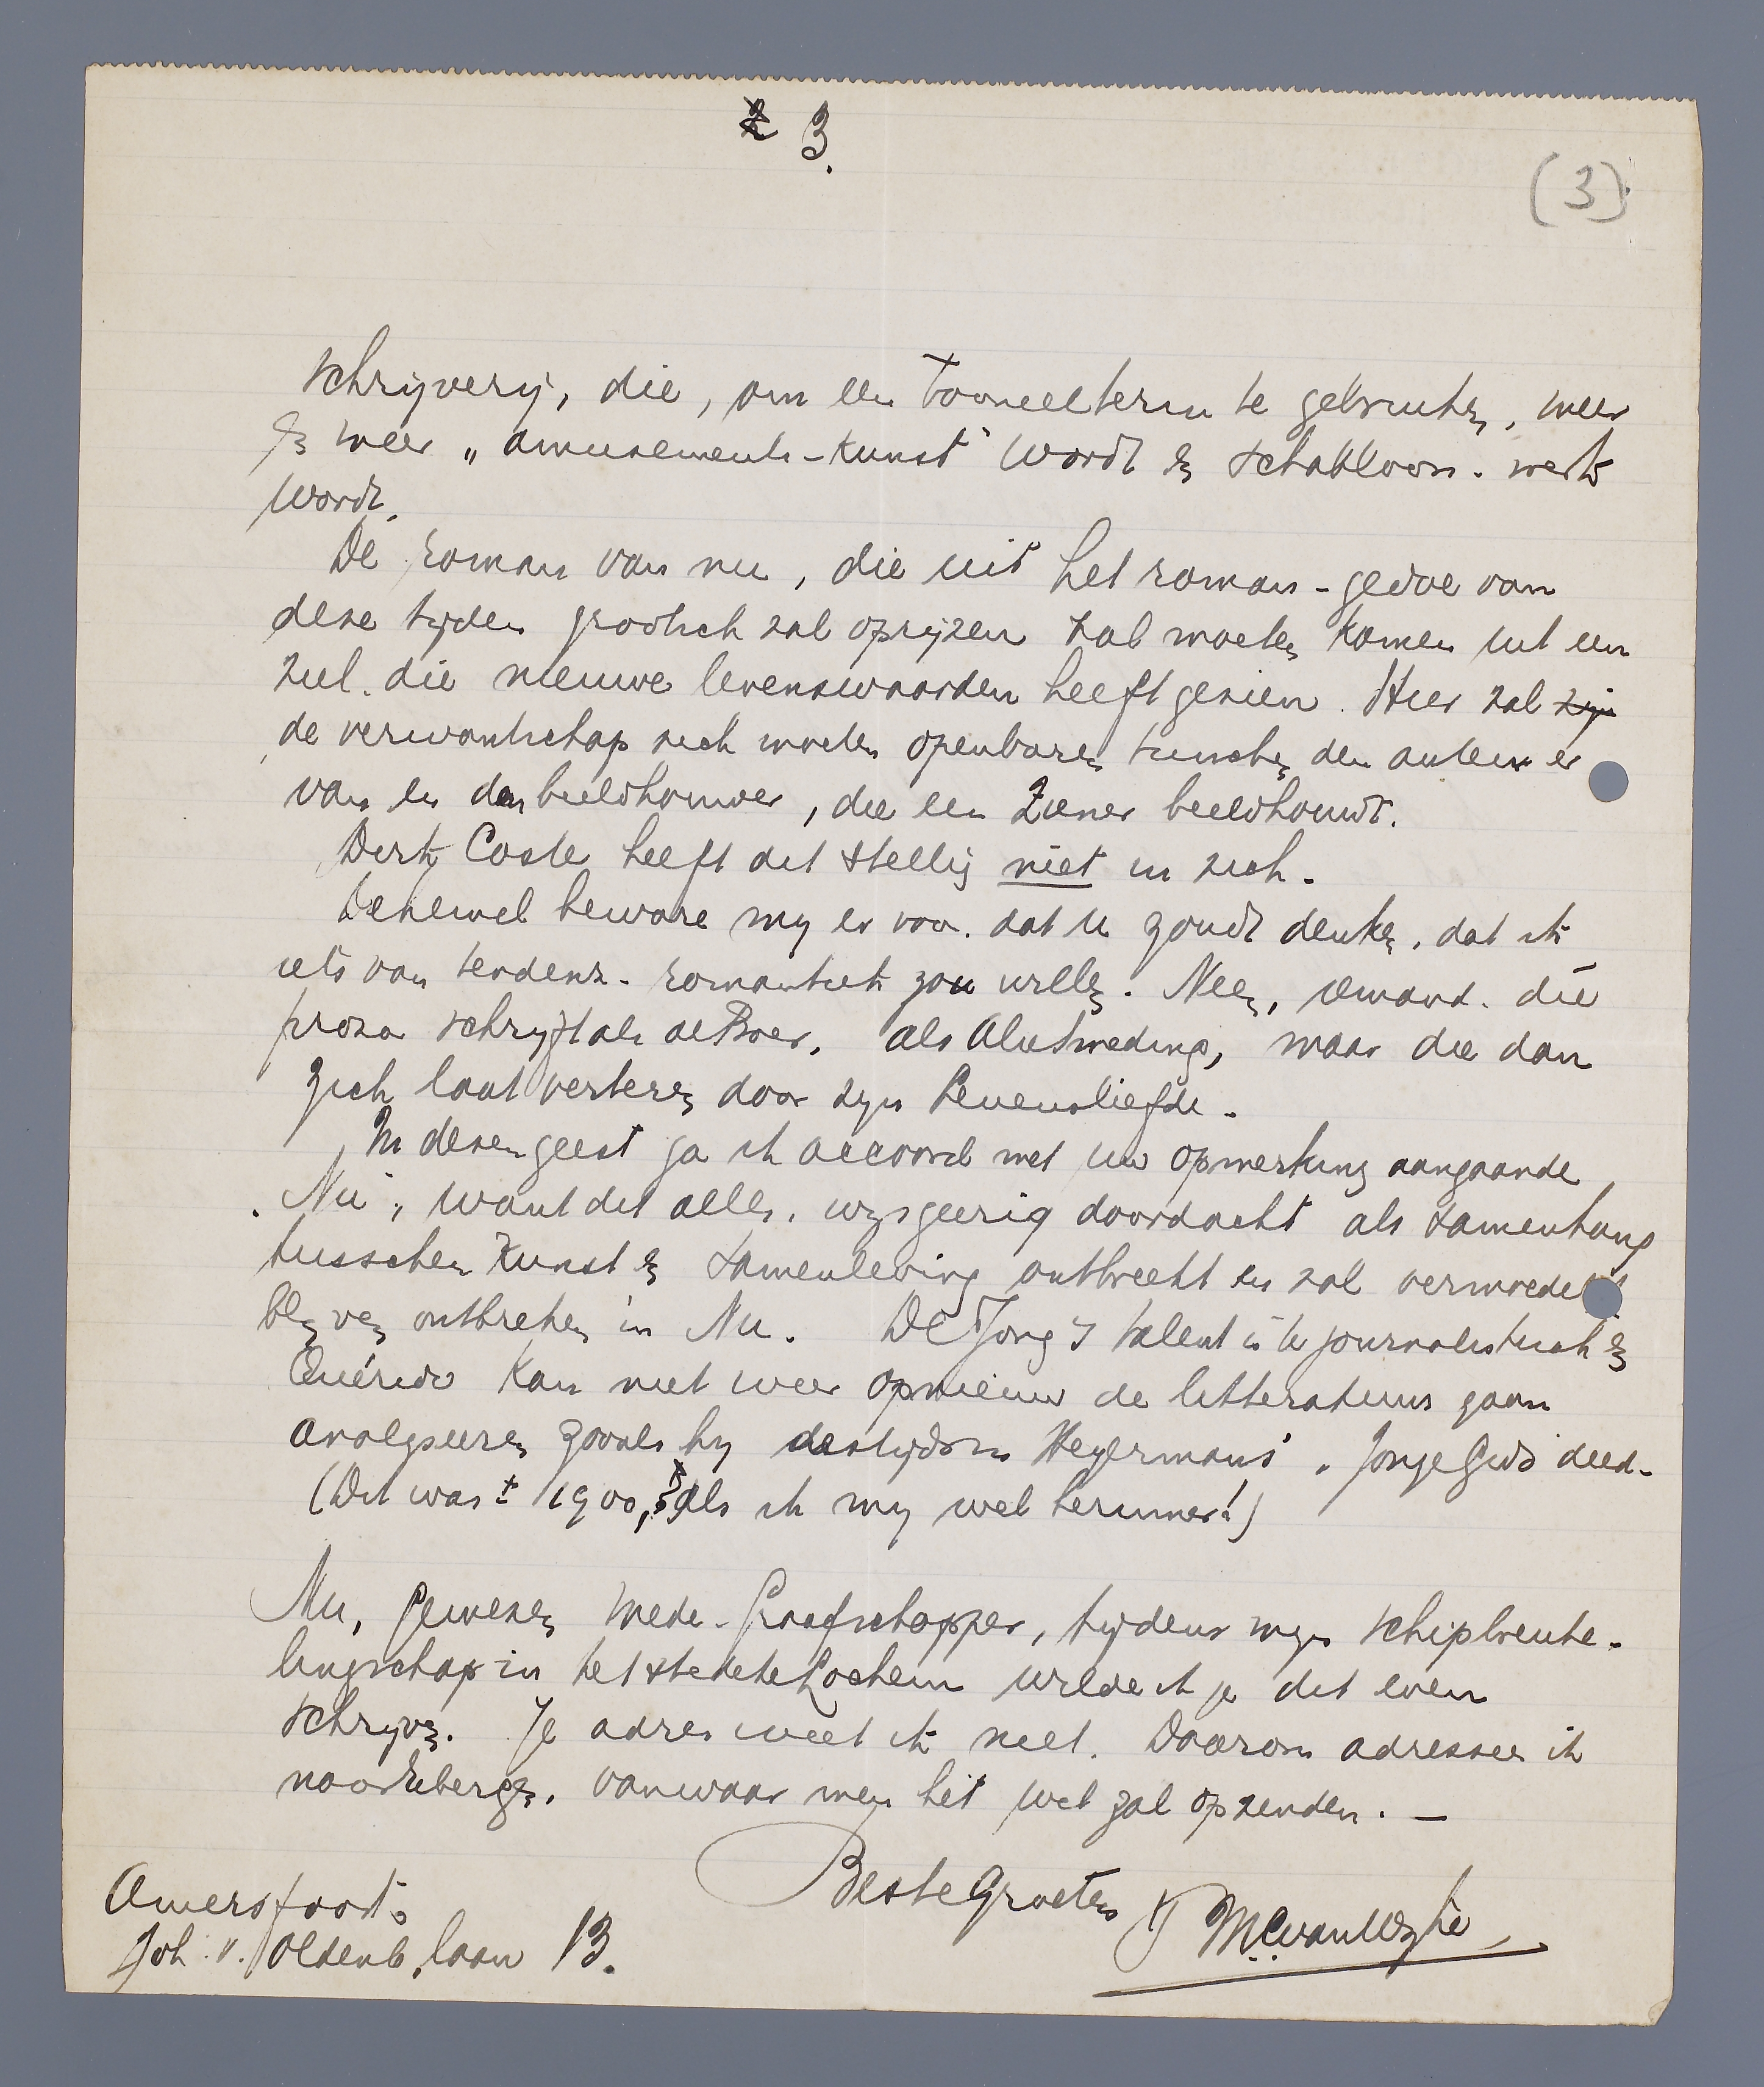 2 3.
(3)
schrijverij, die, om een tooneelterm te gebruiken, meer
en meer „amusements-kunst" wordt en schabloon-werk
wordt.
De roman van nu, die uit het roman-gedoe van
deze tijden grootsch zal oprijzen zal moeten komen uit een
ziel die nieuwe levenswaarden heeft gezien. Hier zal zijn
de verwantschap zich moeten openbaren tusschen den auteur er
van en den beeldhouwer, die een Zaener beeldhouwt.
Dirk Coste heeft dit stellig niet in zich.
Dezewel beware mij er voor dat U zoudt denken, dat ik
iets van tendenz-romantiek zou willen. Neen, iemand die
proza schrijft als de Boer, als Aletrino, maar die dan
zich laat verteren door zijn Levensliefde.
In dezen geest ga ik accoord met uw opmerking aangaande
„Nu", want dit alles, wijsgeerig doordacht als samenhang
tusschen Kunst en samenleving ontbreekt en zal vermoedelijk
blijven ontbreken in Nu. De Jong's talent is te journalistisch en
Quérido kan niet weer opnieuw de litteratuur gaan
analyseeren zooals hij destijds in Heyermans' „Jonge Gids" deed.
(Dit was ± 1900, als ik mij wel herinner!)
Nu, gewezen mede-Graafschapper, tijdens mijn schipbreuke-
lingschap in het stedeke Lochem wilde ik je dit even
schrijven. Je adres weet ik niet. Daarom adresseer ik
vanwaar men het wel zal opzenden. —
Beste Groeten
Amersfoort.
Joh. v. Oldenb. laan 13.